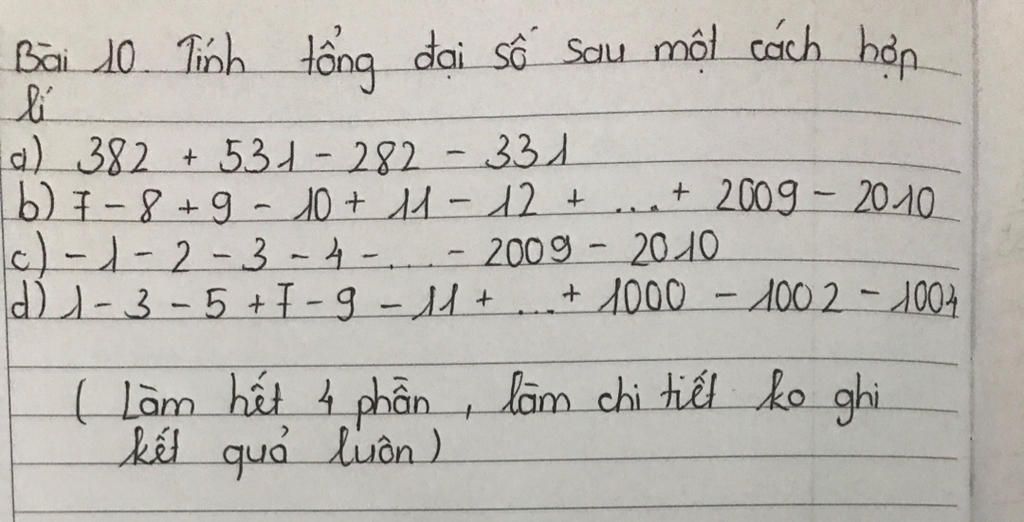 Bài 10. Tính tổng đại số sau một cách hợp
lí
a) 382 + 531 - 282 - 331
b) 7 - 8 + 9 - 10 + 11 - 12 + ... + 2009 - 2010
c) - 1 - 2 - 3 - 4 - ... - 2009 - 2010
d) 1 - 3 - 5 + 7 - 9 - 11 + ... + 1000 - 1002 - 1004
( Làm hết 4 phần , làm chi tiết ko ghi
kết quả luôn )